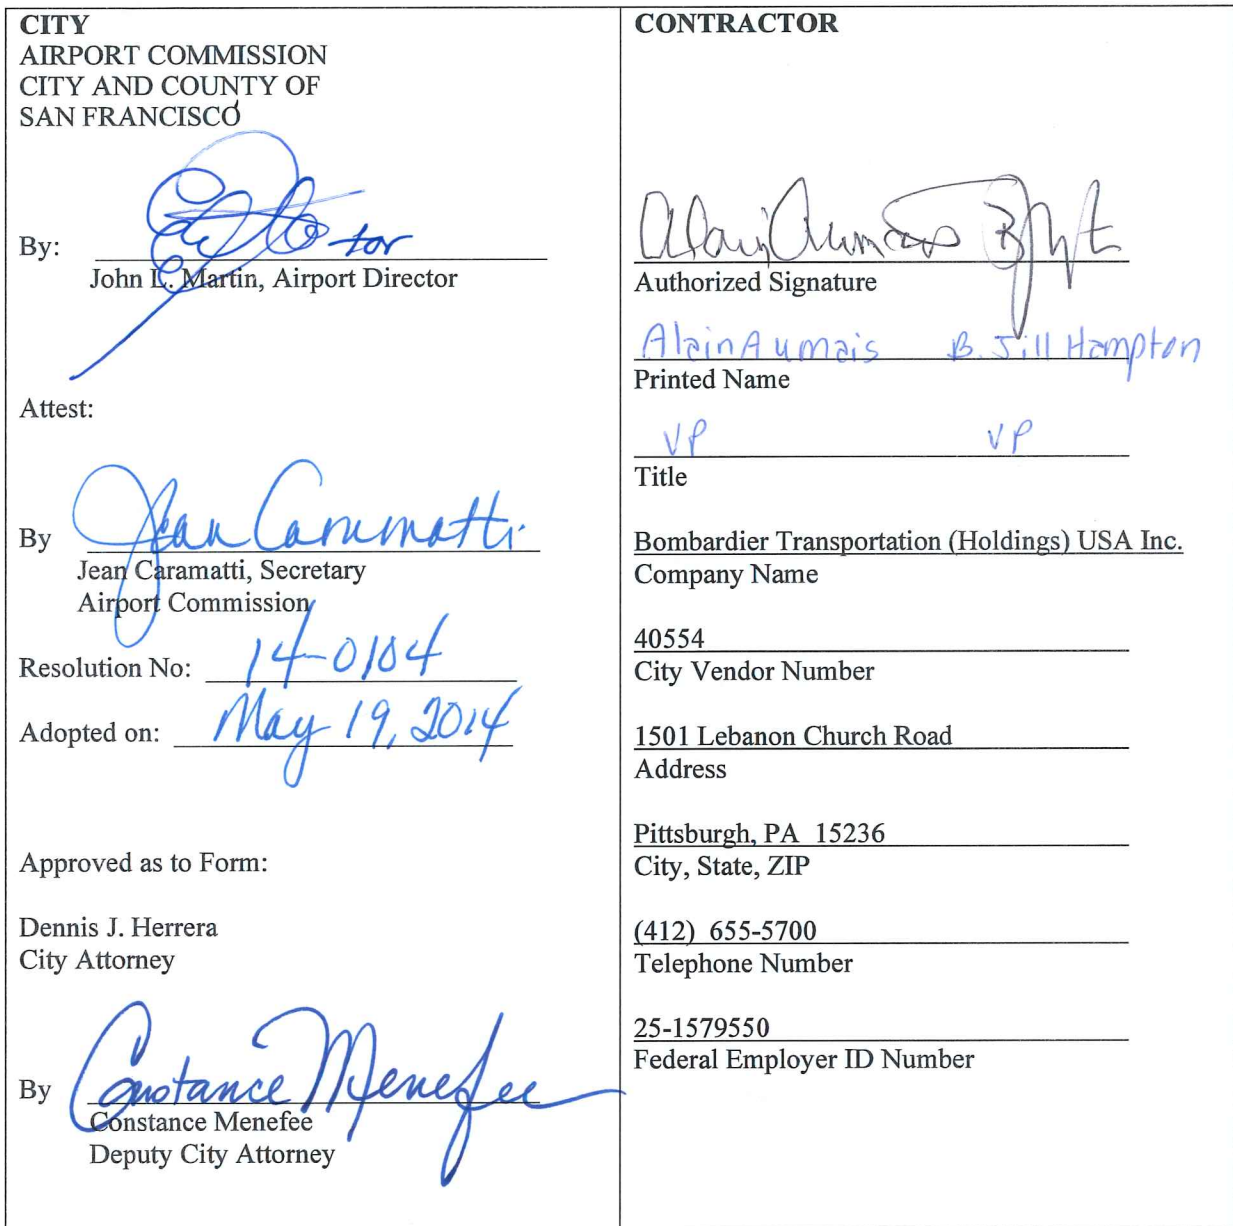 CITY
AIRPORT COMMISSION
CITY AND COUNTY OF
SAN FRANCISCO
By:
for
John L. Martin, Airport Director
Attest:
By Jean Caramatti
Jean Caramatti, Secretary
Airport Commission
Resolution No: 14-0104
Adopted on: May 19, 2014
Approved as to Form:
Dennis J. Herrera
City Attorney
By Constance Menefee
Constance Menefee
Deputy City Attorney
CONTRACTOR
Alain Aumais
Authorized Signature
Alain Aumais B. Jill Hampton
Printed Name
VP VP
Title
Bombardier Transportation (Holdings) USA Inc.
Company Name
40554
City Vendor Number
1501 Lebanon Church Road
Address
Pittsburgh, PA 15236
City, State, ZIP
(412) 655-5700
Telephone Number
25-1579550
Federal Employer ID Number